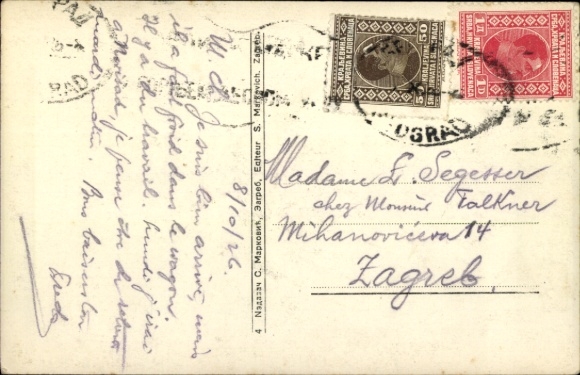 8/10/26.
M ch
Je suis bien arrivé, mais
il a fait froid dans le wagon.
Il y a du travail. Lundi j'irai
à Novisad, je pense être de retour
mardi matin. Bons baisers
Fredo
4 Издавач С. Марковић, Загреб, Editeur S. Marković, Zagreb.
КРАЉЕВИНА
СРБА, ХРВАТА И СЛОВЕНАЦА
50
КРАЉЕВИНА
СРБА, ХРВАТА И СЛОВЕНАЦА
1 Д
1 D
Madame L. Segesser
chez Monsieur Falkner
Mihanovićeva 14
Zagreb.